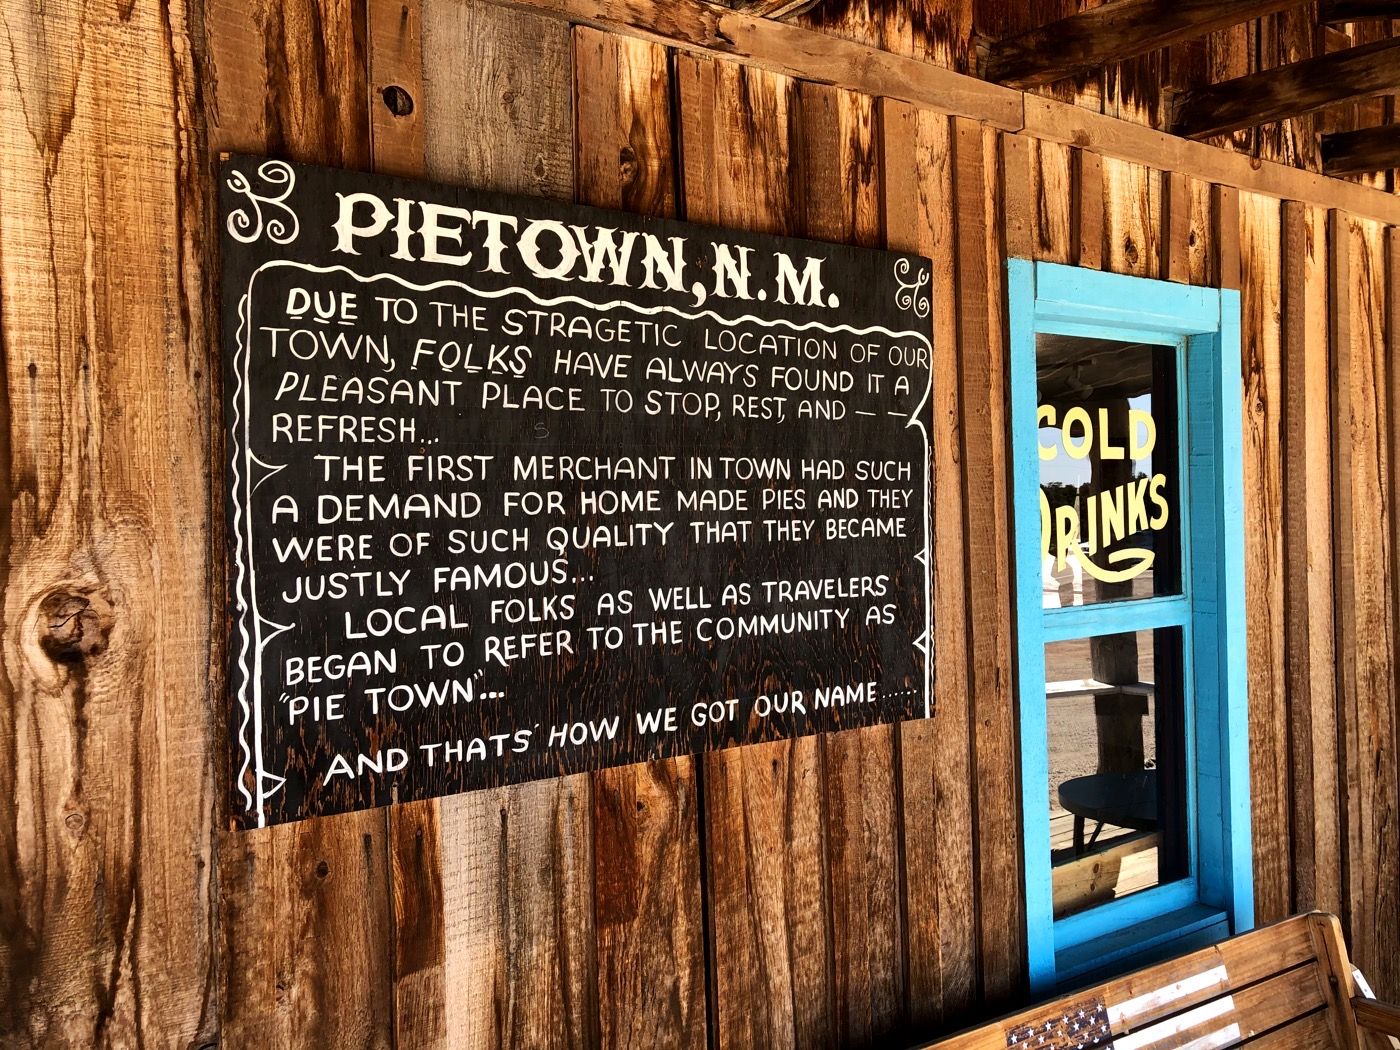 PIETOWN, N.M.
DUE TO THE STRAGETIC LOCATION OF OUR
TOWN, FOLKS HAVE ALWAYS FOUND IT A
PLEASANT PLACE TO STOP, REST, AND — —
REFRESH...
THE FIRST MERCHANT IN TOWN HAD SUCH
A DEMAND FOR HOME MADE PIES AND THEY
WERE OF SUCH QUALITY THAT THEY BECAME
JUSTLY FAMOUS...
LOCAL FOLKS AS WELL AS TRAVELERS
BEGAN TO REFER TO THE COMMUNITY AS
"PIE TOWN"...
AND THATS' HOW WE GOT OUR NAME......
COLD
DRINKS